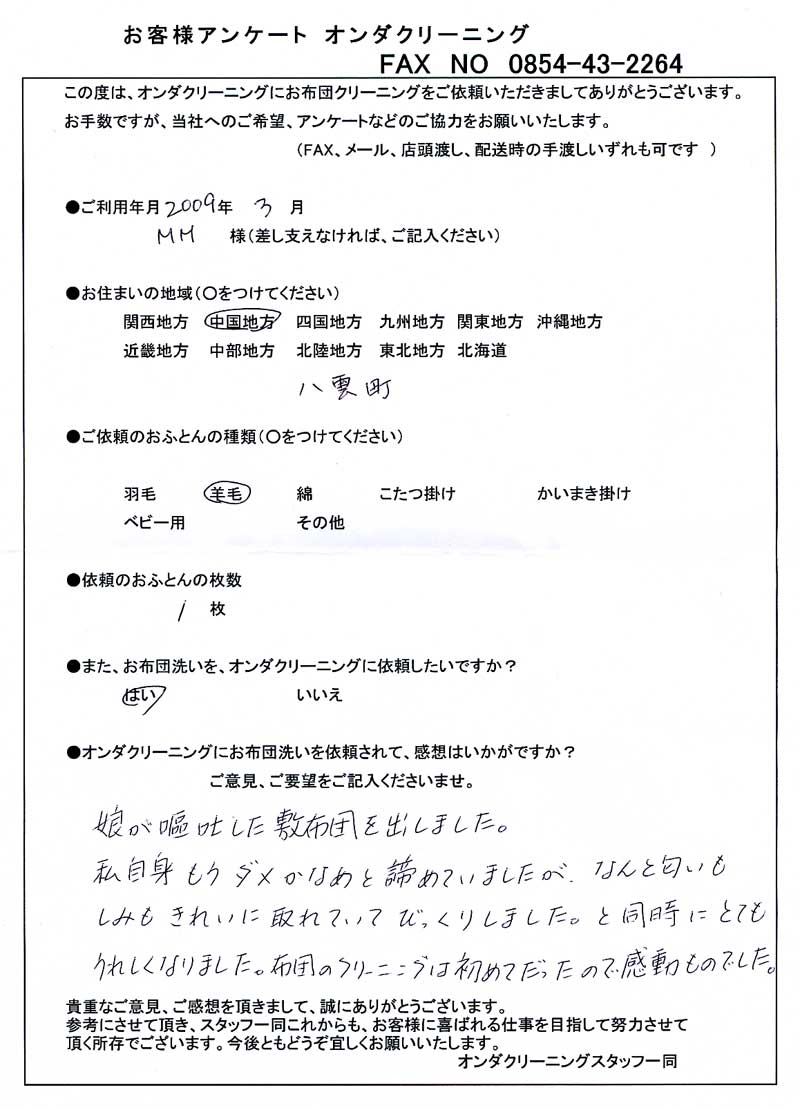 お客様アンケート オンダクリーニング
FAX NO 0854-43-2264
この度は、オンダクリーニングにお布団クリーニングをご依頼いただきましてありがとうございます。
お手数ですが、当社へのご希望、アンケートなどのご協力をお願いいたします。
(FAX、メール、店頭渡し、配送時の手渡しいずれも可です )
●ご利用年月 2009年 3 月
MM 様(差し支えなければ、ご記入ください)
●お住まいの地域(○をつけてください)
関西地方 中国地方 四国地方 九州地方 関東地方 沖縄地方
近畿地方 中部地方 北陸地方 東北地方 北海道
八雲町
●ご依頼のおふとんの種類(○をつけてください)
羽毛 羊毛 綿 こたつ掛け かいまき掛け
ベビー用 その他
●依頼のおふとんの枚数
1 枚
●また、お布団洗いを、オンダクリーニングに依頼したいですか?
はい いいえ
●オンダクリーニングにお布団洗いを依頼されて、感想はいかがですか?
ご意見、ご要望をご記入くださいませ。
娘が嘔吐した敷布団を出しました。
私自身もうダメかなめと諦めていましたが、なんと匂いも
しみもきれいに取れていてびっくりしました。と同時にとても
うれしくなりました。布団のクリーニングは初めてだったので感動ものでした。
貴重なご意見、ご感想を頂きまして、誠にありがとうございます。
参考にさせて頂き、スタッフ一同これからも、お客様に喜ばれる仕事を目指して努力させて
頂く所存でございます。今後ともどうぞ宜しくお願いいたします。
オンダクリーニングスタッフ一同